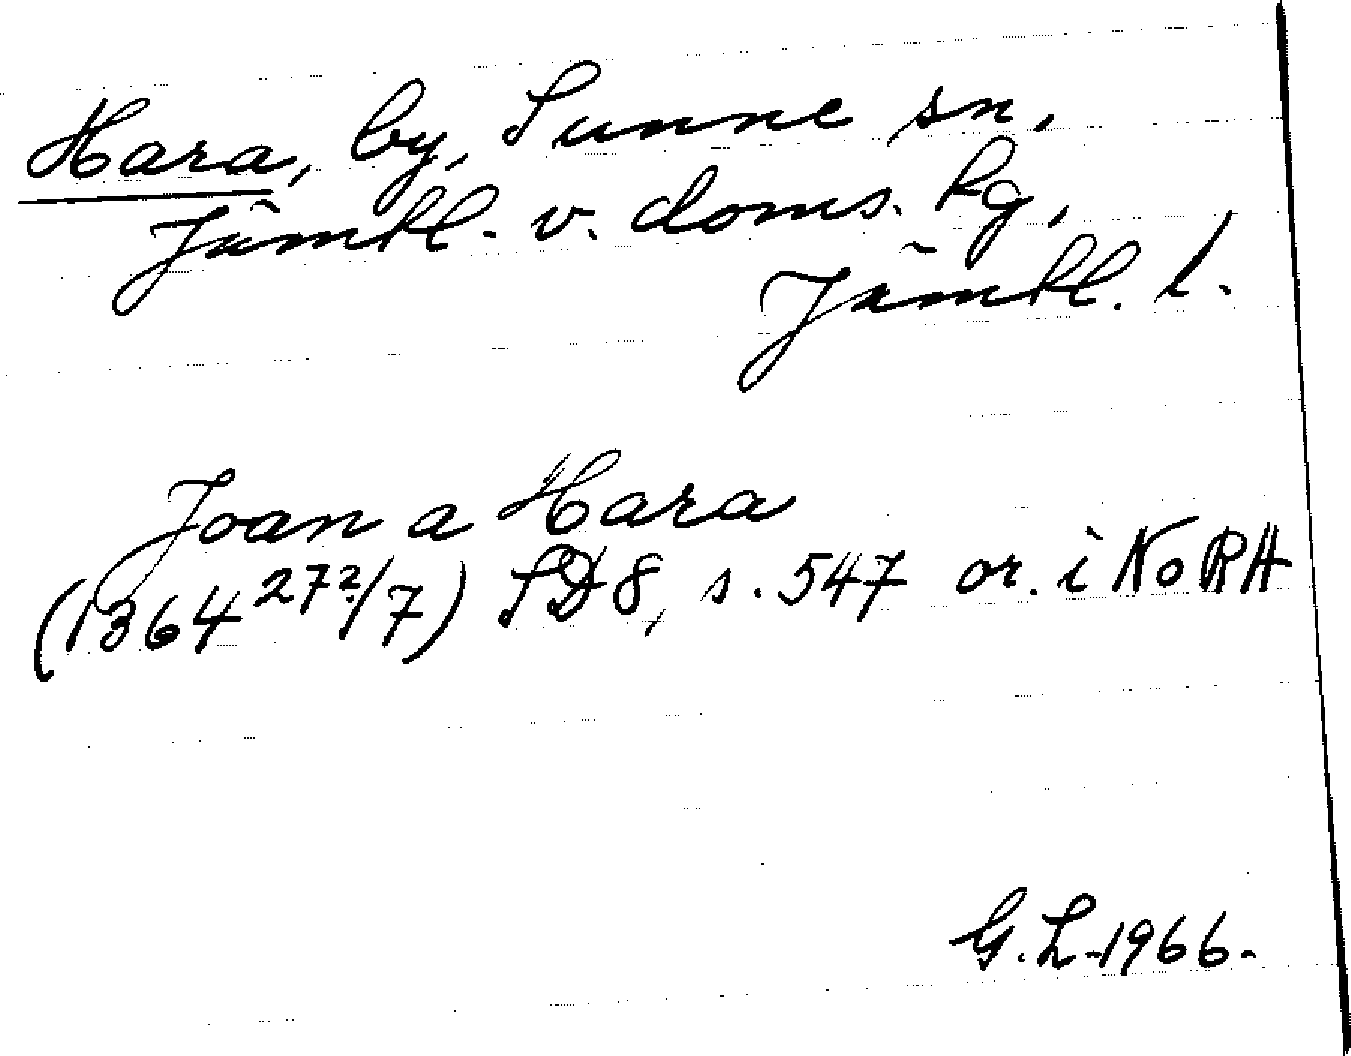 Hara, by, Sunne sn,
Jämtl. v. doms. hg,
Jämtl. l.
Joan a Hara
(1364 27?/7) SD 8, s. 547 or. i NoRA
G. L. 1966.